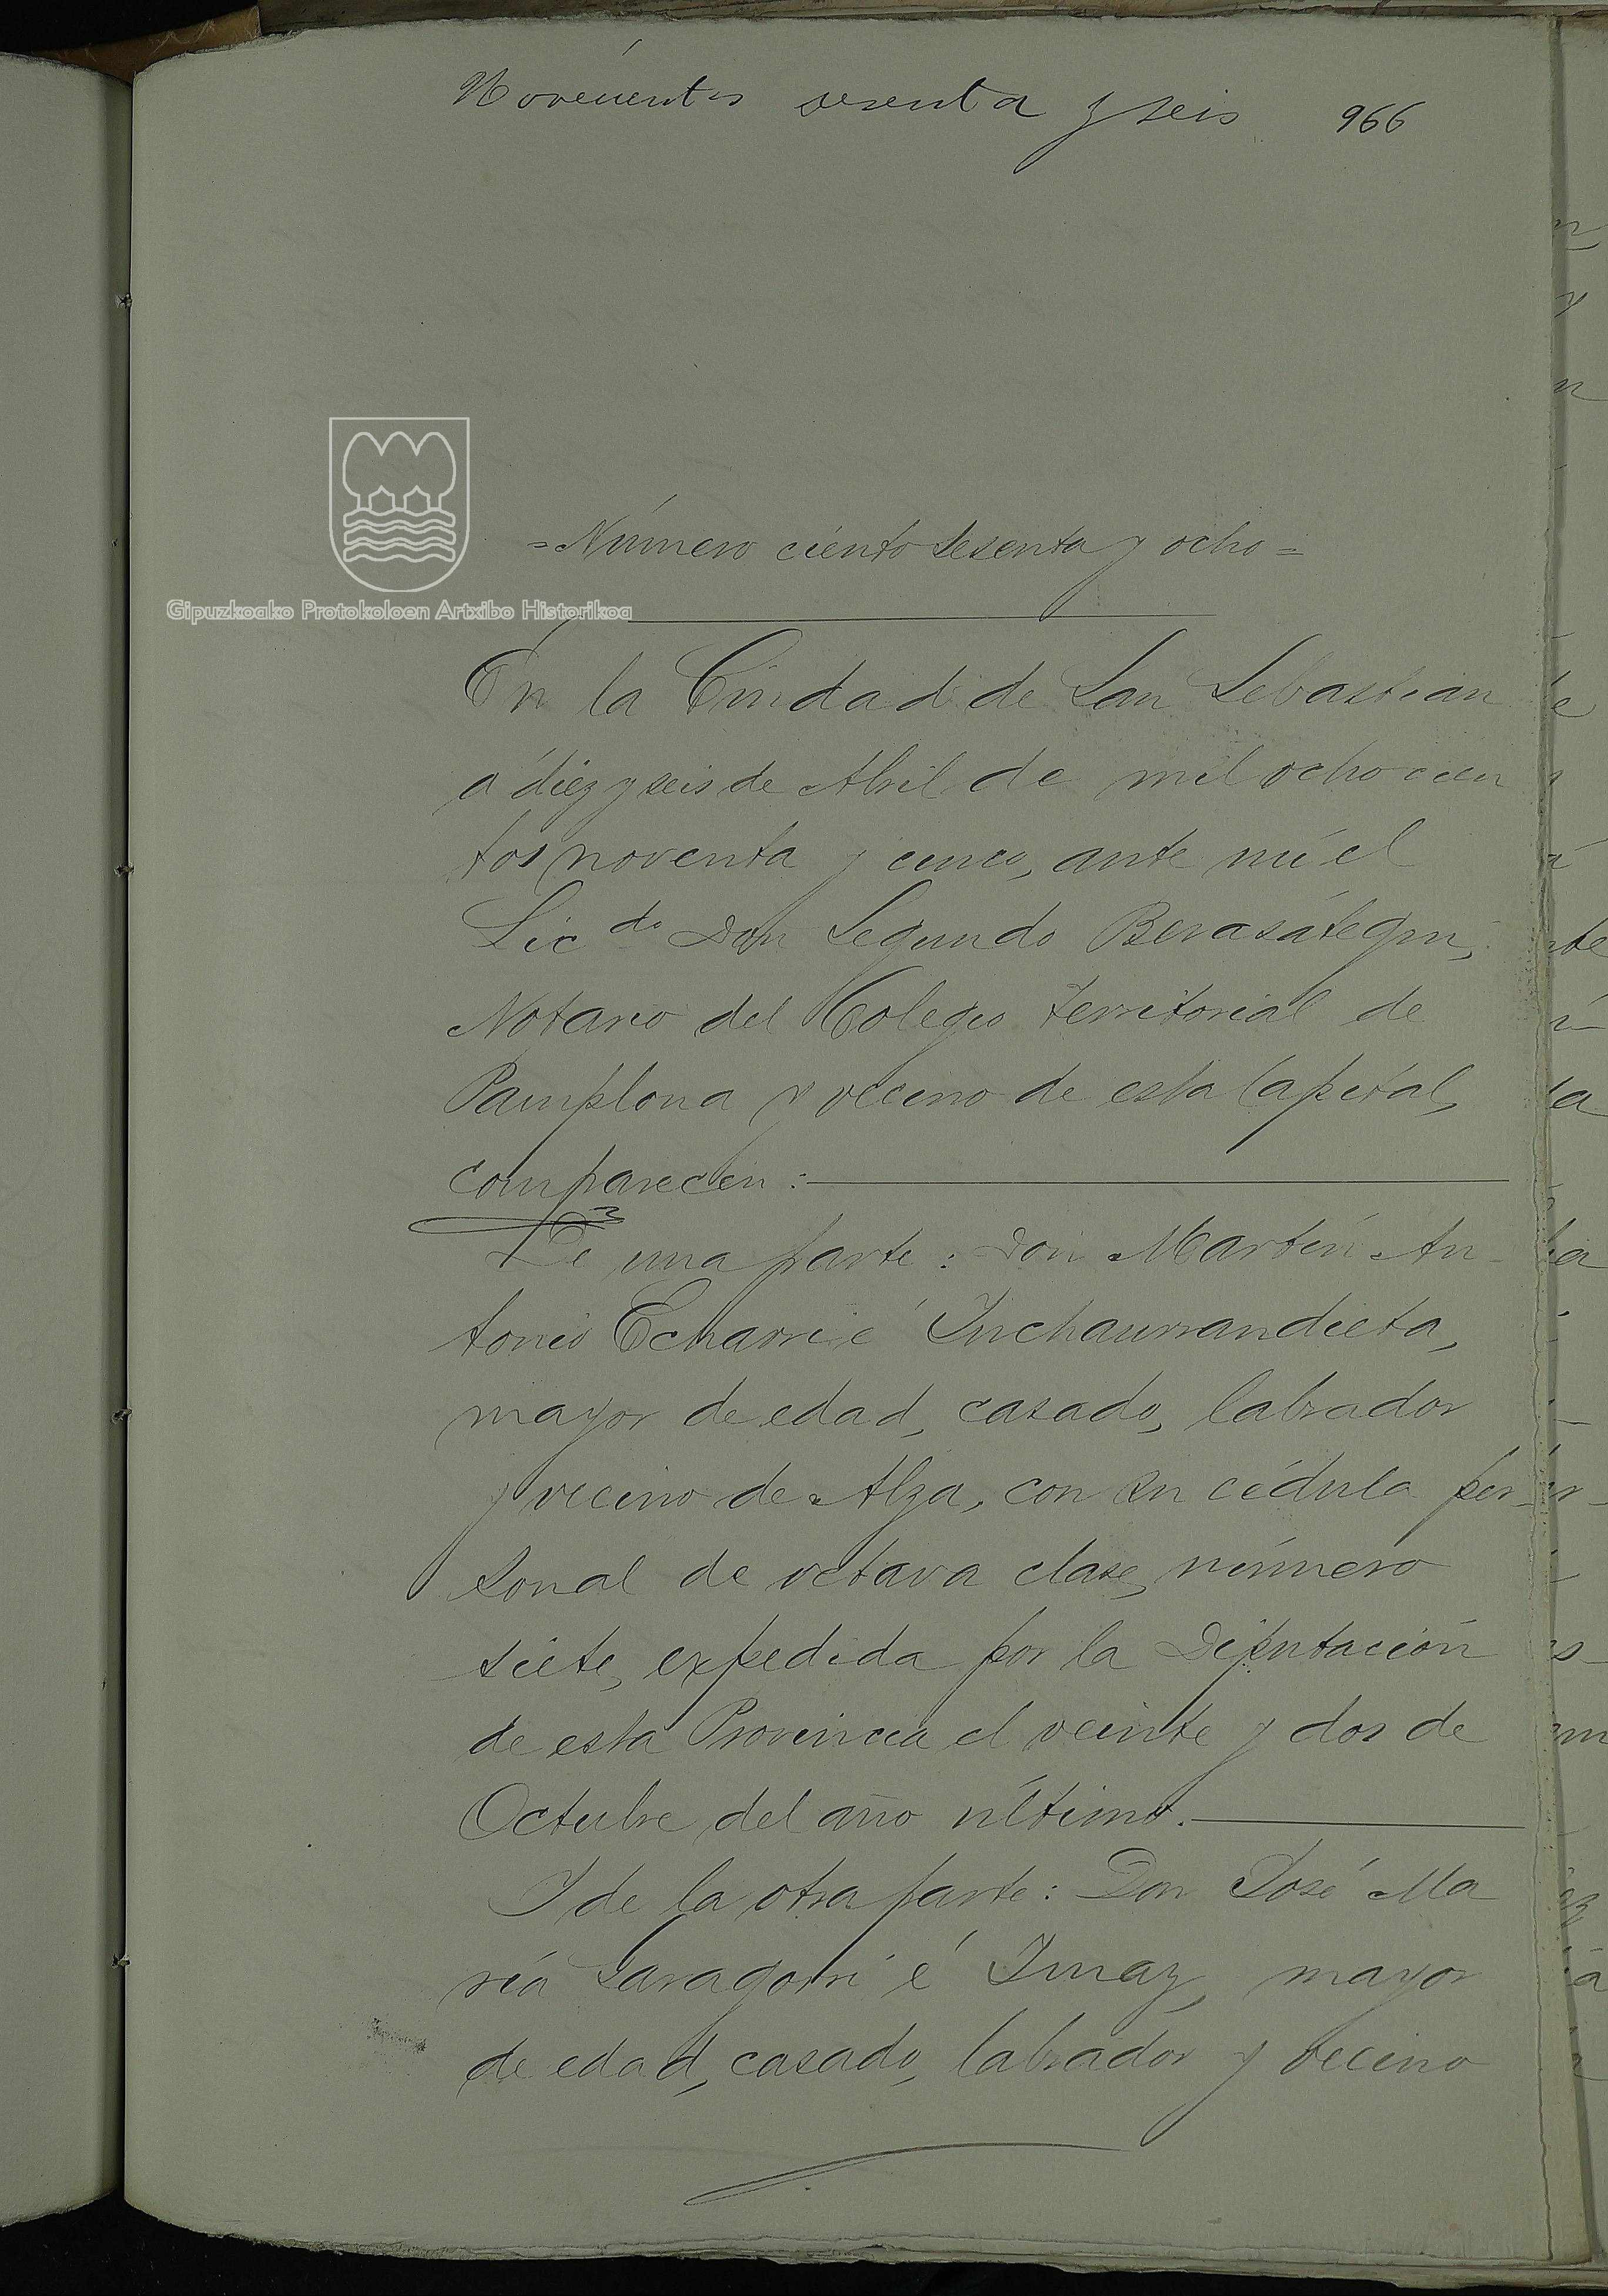 Novecientos sesenta y seis 966
=Número ciento sesenta y ocho=
Gipuzkoako Protokoloen Artxibo Historikoa
En la Ciudad de San Sebastian
a diez y seis de Abril de mil ochocien
tos noventa y cinco, ante mí el
Licdo Don Segundo Berasátegui,
Notario del Colegio territorial de
Pamplona y vecino de esta Capital,
comparecen:
De una parte: Don Martín An-
tonio Echarri é Inchaurrandieta,
mayor de edad, casado, labrador
y vecino de Alza, con su cédula per-
sonal de octava clase, número
siete, expedida por la Diputación
de esta Provincia el veinte y dos de
Octubre del año último.
I de la otra parte: Don José Ma
ría Garagorri é Imaz, mayor
de edad, casado, labrador y vecino